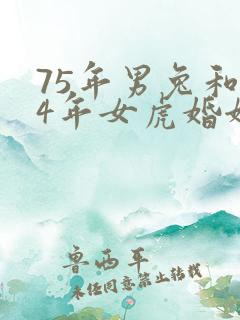 75年男兔和
4年女虎婚
鲁西平
未经同意禁止转载